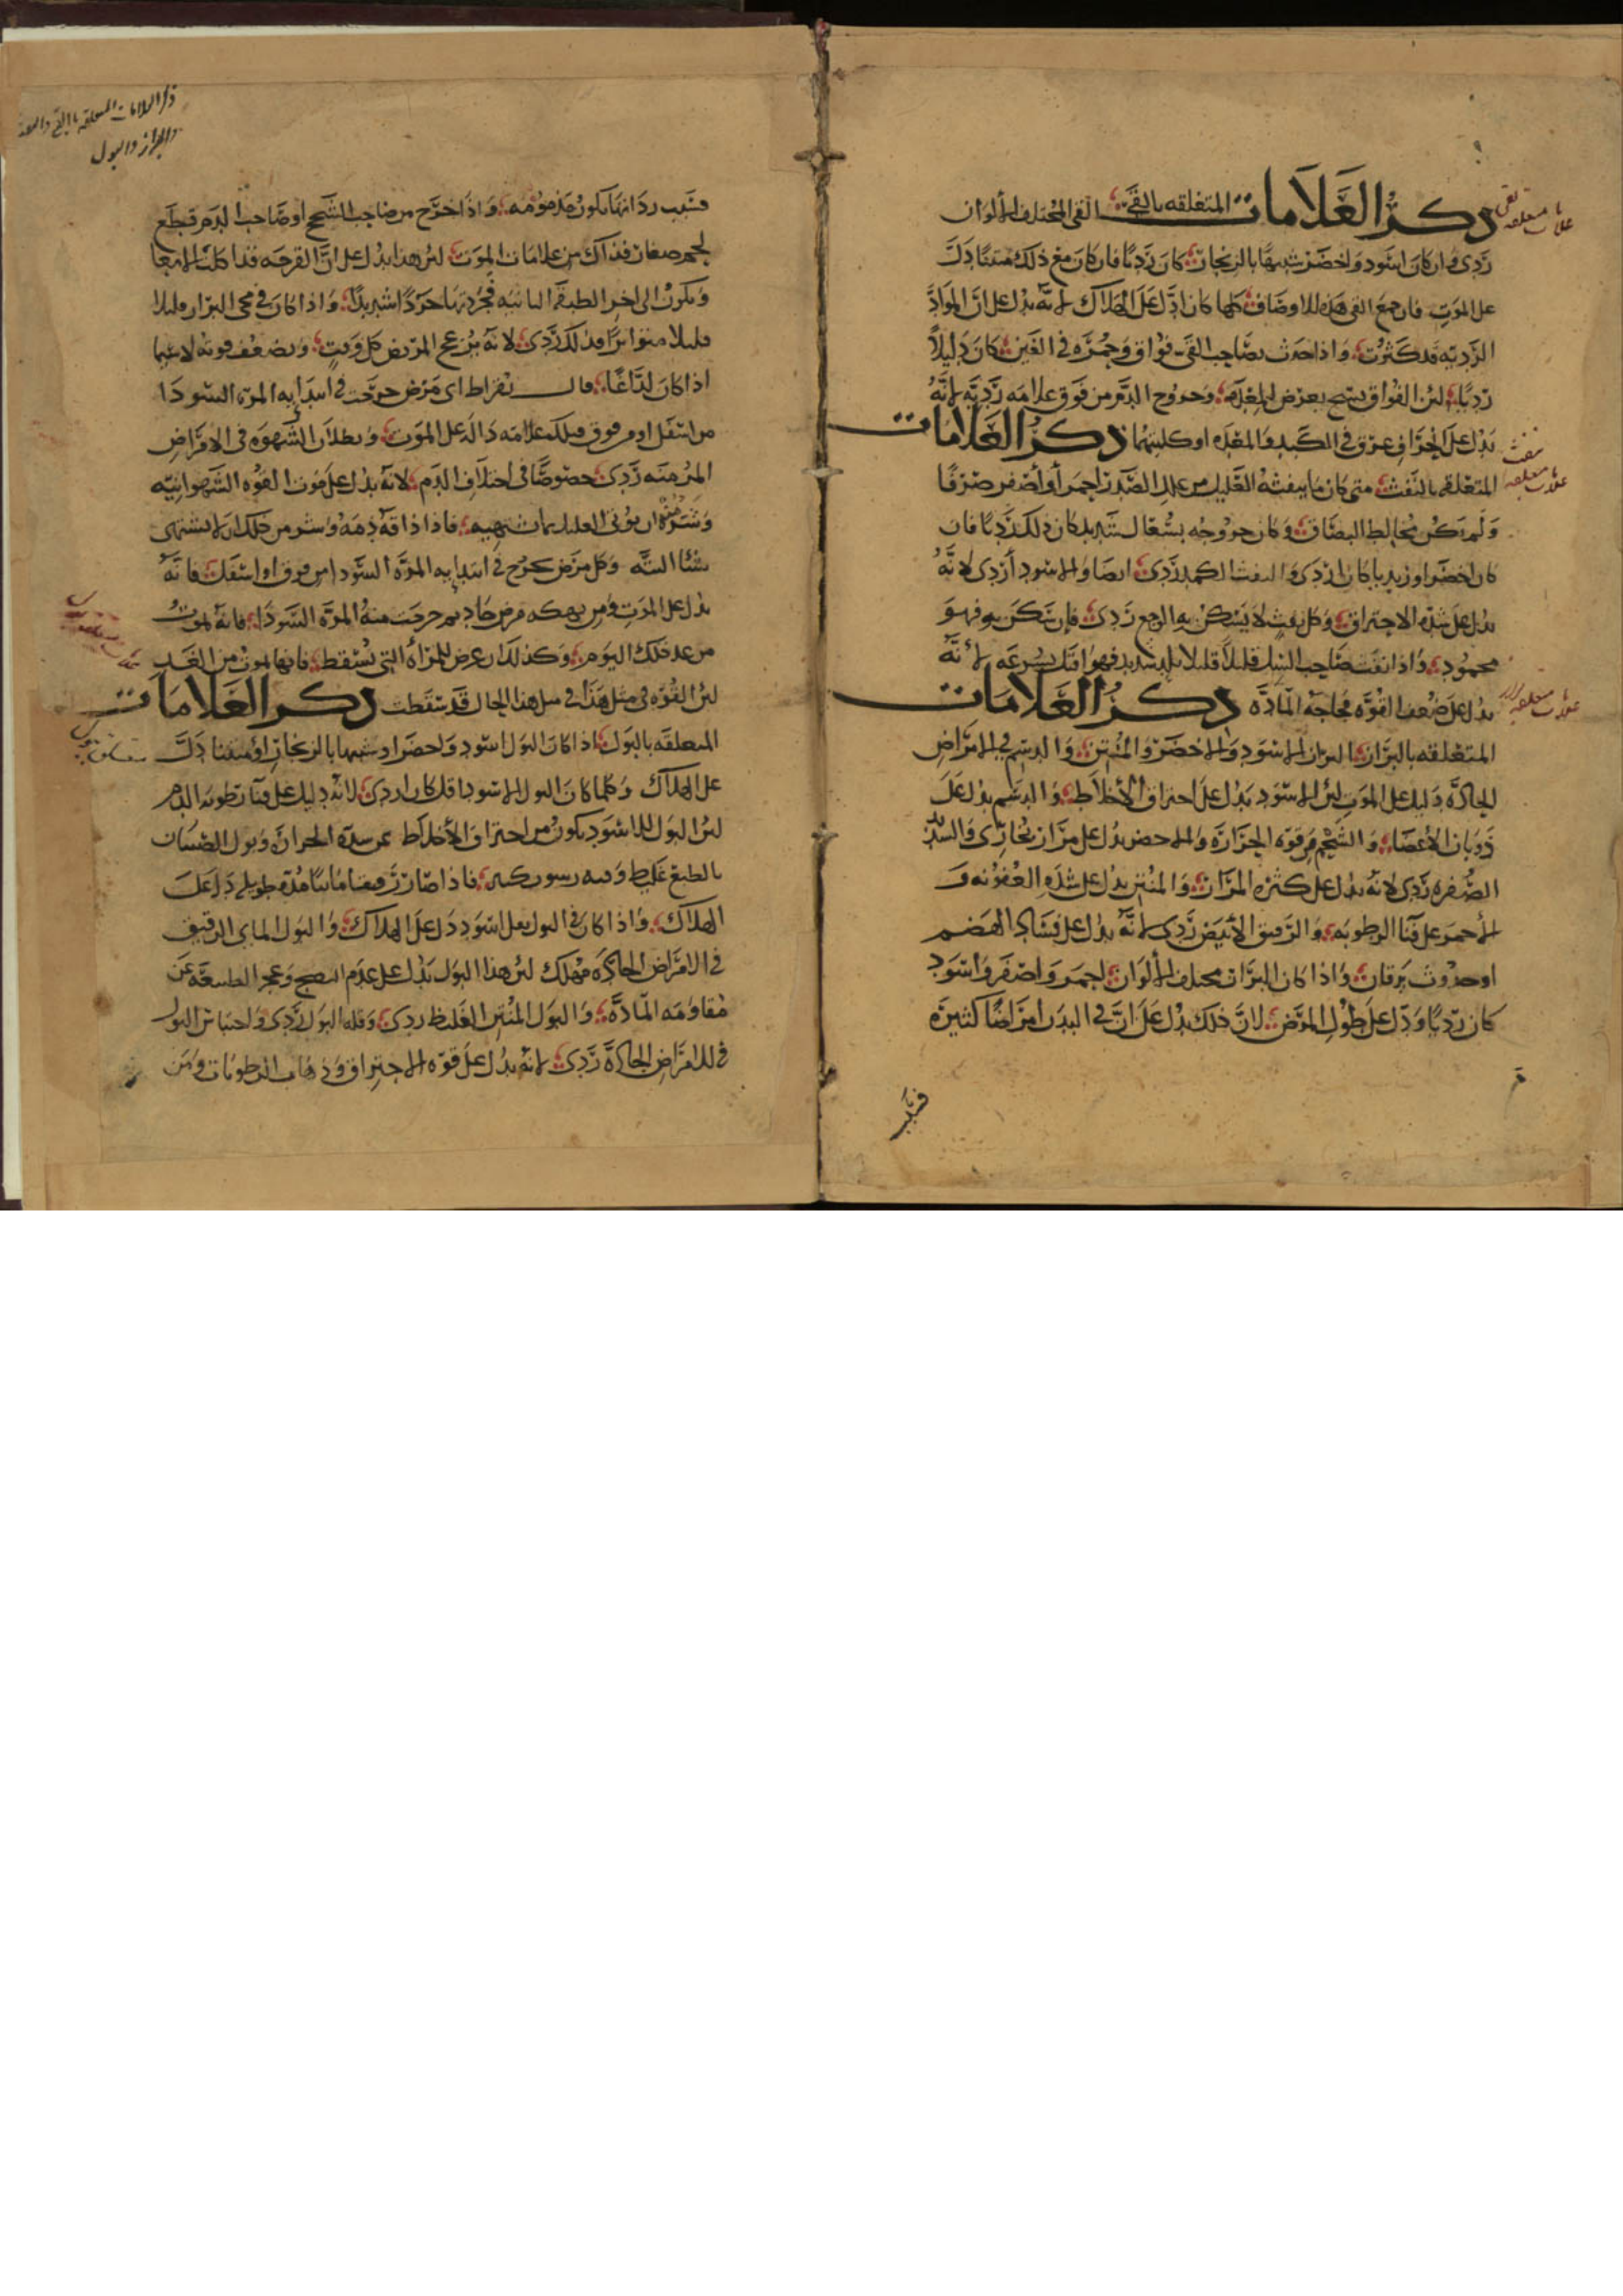 ذكر العلامات المتعلقه بالقي القي المختلف الألوان
ردي وان كان اسود واخضر شبيها بالزنجار كان رديا فان كان مع ذلك منتنا دل
على الموت فان جمع القي هذه الاوصاف كلها كان ادل على الهلاك لانه يدل على ان المواد
الرديه قد كثرت واذا حدث بصاحب القي فواق وحمره في العين كان دليلا
رديا لئن الفواق يعرض للمعده وخروج الدم من فوق علامه رديه لانه
يدل على انخراق عرق في الكبد والمعده او كليتهما ذكر العلامات
المتعلقه بالنفث متى كان ما ينفثه العليل من علل الصدر احمر أو أصفر صرفا
ولم يكن مخالط البصاق وكان خروجه بسعال شديد كان ذلك رديا فان
كان اخضر او زبديا كان اردى والنفث الكمد ردي ايضا والاسود أردى لانه
يدل على شده الاحتراق وكل نفث لا يسكن به الوجع ردي فإن سكن به فهو
محمود واذا نفث صاحب السل قليلا قليلا شديد فهو قتل بسرعه لأنه
يدل على ضعف القوه وفجاجة الماده ذكر العلامات
المتعلقه بالبراز البراز الاسود والاخضر والمنتن والدسم في الامراض
الحادة دليل على الموت لئن الاسود يدل على احتراق الأخلاط والدسم يدل على
ذوبان الأعضاء والشحم من قوه الحراره والاخضر يدل على مرار زنجاري والشديد
الصفره ردي لانه يدل على كثره المرار والمنتن يدل على شده العفونه و
الأحمر على فنا الرطوبه والرقيق الأبيض ردي لانه يدل على فساد الهضم
او حدوث يرقان واذا كان البراز مختلف الألوان احمر واصفر واسود
كان رديا ودل على طول المرض لان ذلك يدل على ان في البدن امراضا كثيره
فسبب
علامات متعلقه بقي
علامات متعلقه بنفث
علامات متعلقه ببراز
ذكر العلامات المتعلقه باالقي والنفث
والبراز والبول
فسبب رداتها يكون مذمومه واذا خرج من صاحب السحج او صاحب الدم قطع
لحم صغار فذاك من علامات الموت لئن هذا يدل على ان القرحه قد اكلت الامعا
ويكون الى اخر الطبقة الثانيه جردا شديدا واذا كان في مجي البزار قليلا
قليلا متواترا فذلك ردي لانه يزعج المريض كل وقت ويضعف قوته لا سيما
اذا كان لذاعا قال بقراط اي مرض خرجت في ابتدايه المرة السودا
من اسفل او من فوق فتلك علامه دالة على الموت وبطلان الشهوه في الامراض
المزمنه ردي خصوصا في اختلاف الدم لانه يدل على موت القوه الشهوانيه
وشر منه ان يؤتى العليل بما يشتهيه فاذا ذاقه ذمه وشر من ذلك ان لا يشتهى
شيئا البته وكل مرض يخرج في ابتدايه المره السودا من فوق او اسفل فانه
يدل على الموت ومن نهكه مرض حاد ثم خرجت منه المرة السودا فانه يموت
من غد ذلك اليوم وكذلك ان عرض للمراه التي تسقط فانها تموت من الغد
لئن القوه في مثل هذا الحال قد سقطت ذكر العلامات
المتعلقه بالبول اذا كان البول اسود واخضر او شبيها بالزنجار او منتنا دل
على الهلاك وكلما كان البول الاسود اقل كان اردى لانه دليل على فنا رطوبه الدم
لئن البول الاسود يكون من احتراق الأخلاط عن شدة الحراره وبول الصبيان
بالطبع غليظ وفيه رسوب كثير فاذا صار رقيقا مائيا مدة طويله دل على
الهلاك واذا كان في البول ثفل اسود دل على الهلاك والبول الماي الرقيق
في الامراض الحاده مهلك لئن هذا البول يدل على عدم النضج وعجز الطبيعه عن
مقاومه المادة والبول المنتن الغليظ ردي وقله البول ردي واحتباس البول
في الامراض الحادة ردي لانه يدل على قوه الاحتراق وذهاب الرطوبات ومن